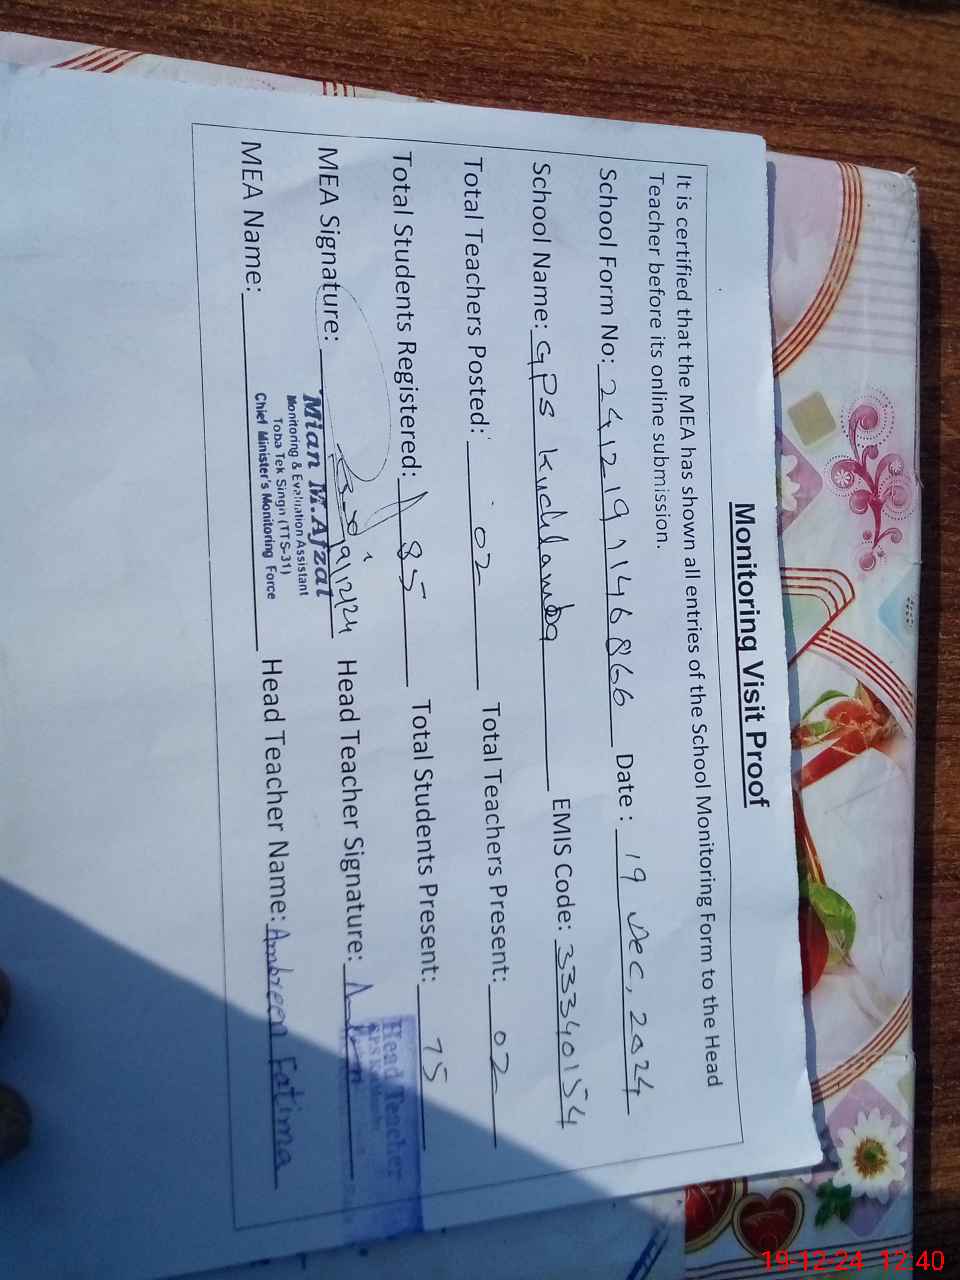 Monitoring Visit Proof
It is certified that the MEA has shown all entries of the School Monitoring Form to the Head
Teacher before its online submission.
School Form No: 24121971146866 Date : 19 Dec, 2024
School Name: GPS EMIS Code: 33340154
Total Teachers Posted: 02 Total Teachers Present: 02
Total Students Registered: 85 Total Students Present: 75
MEA Signature: 19/12/24 Head Teacher Signature:
Mian M.Afzal
Monitoring & Evaluation Assistant
Toba Tek Singh (TTS-31)
Chief Minister's Monitoring Force
Head Teacher
MEA Name: Head Teacher Name: Ambreen Fatima
19-12-24 12:40